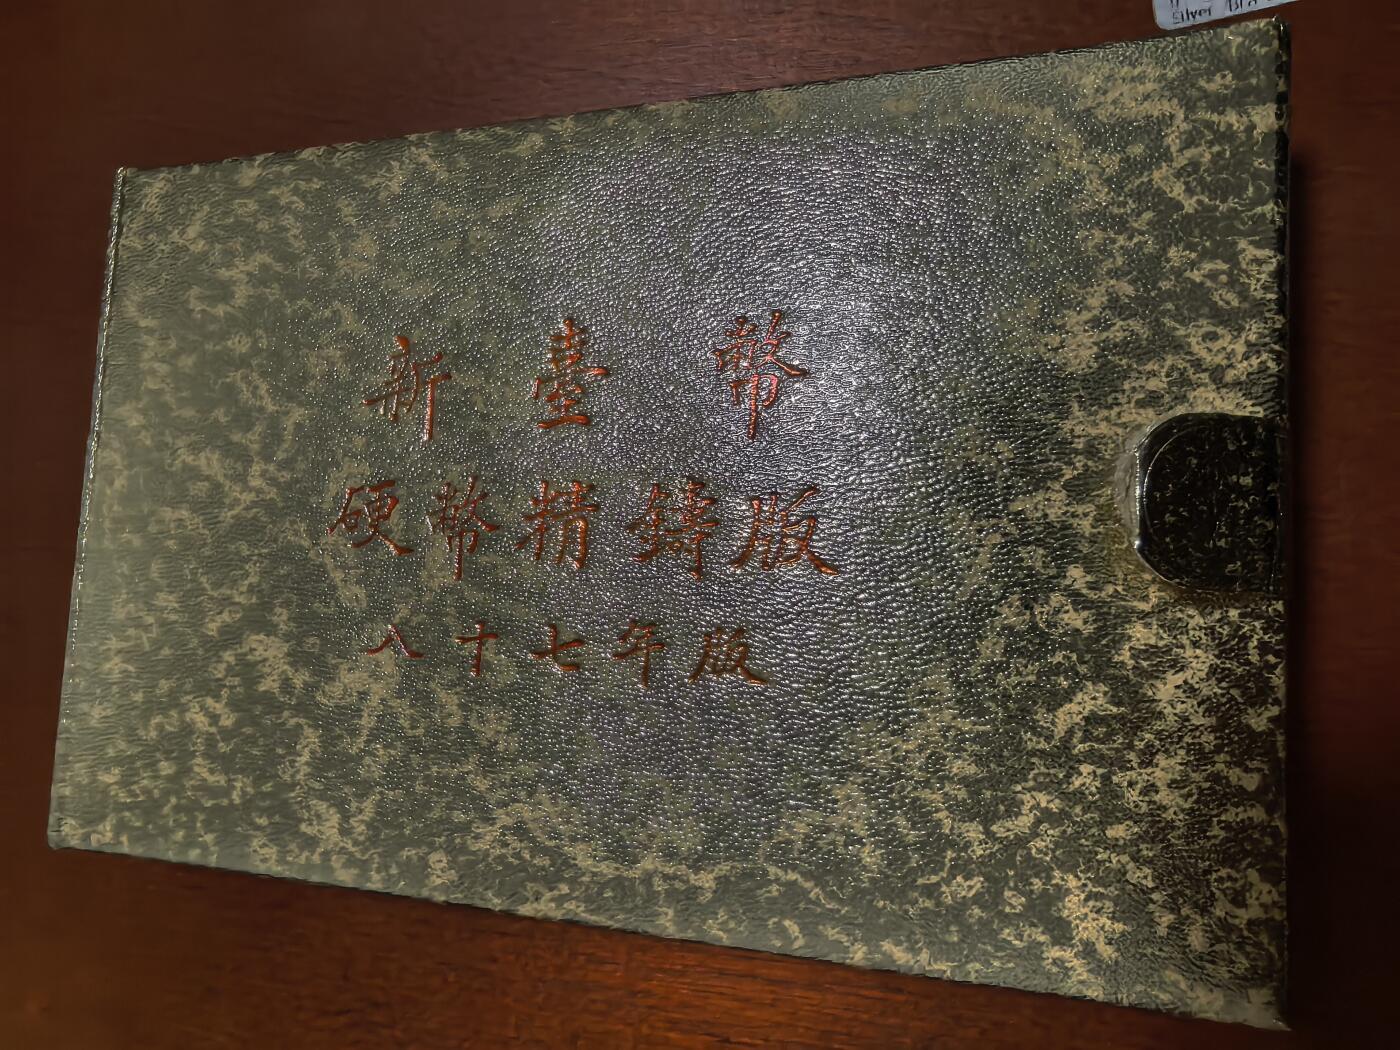 Silver
新臺幣
硬幣精鑄版
八十七年版